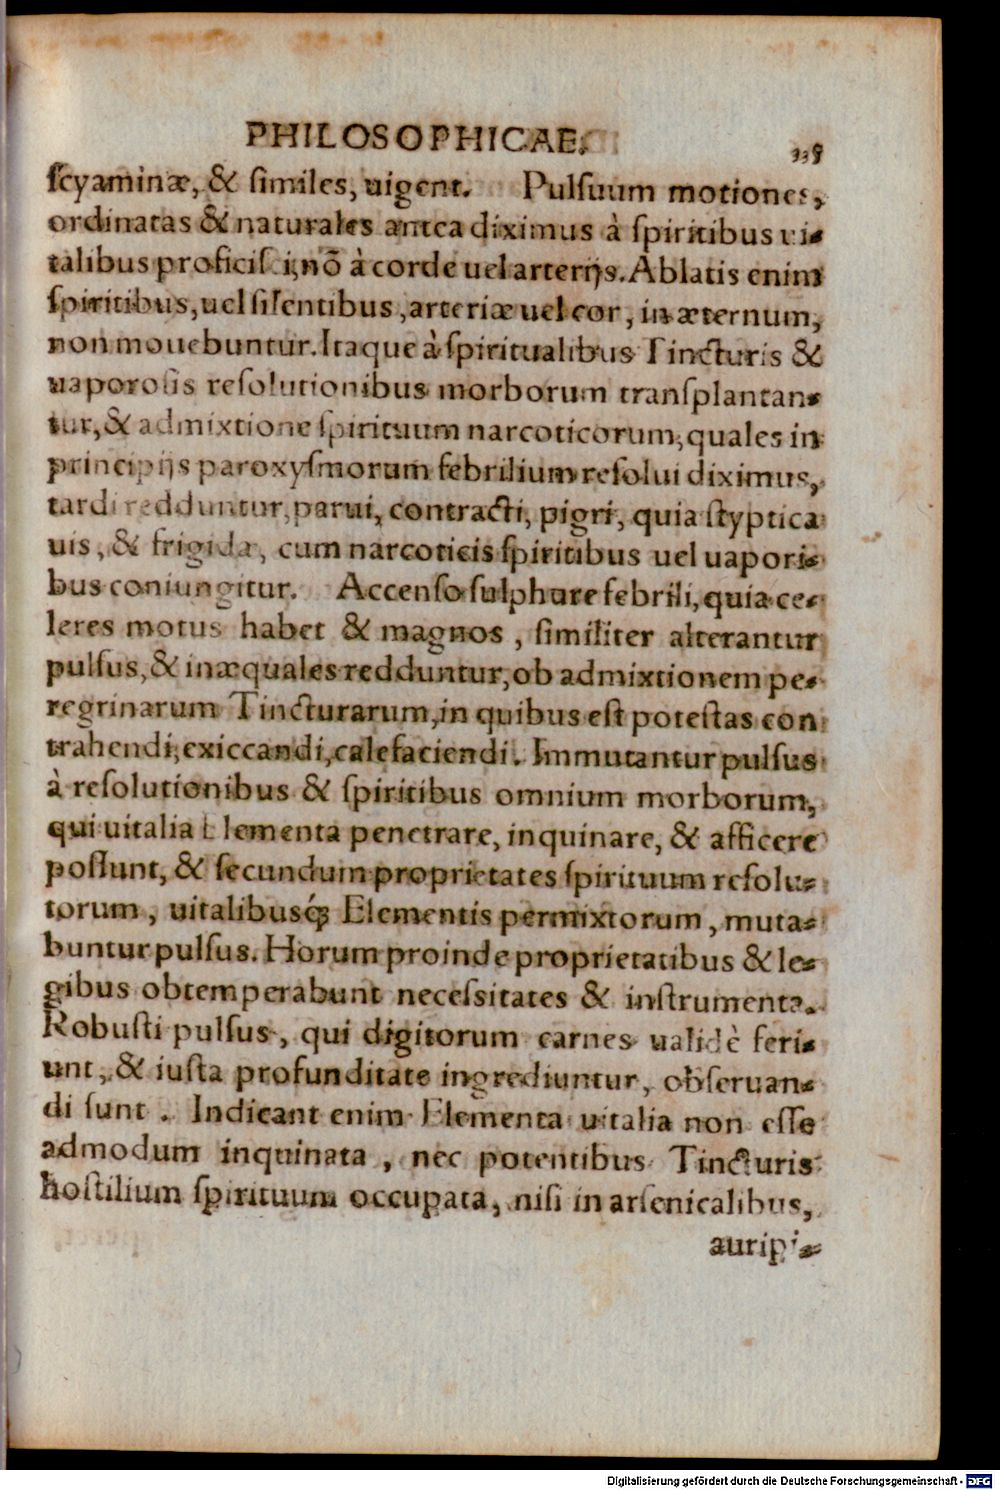 PHILOSOPHICAE.
ſcyaminæ, & ſimiles, uigent. Pulſuum motiones,
ordinatas & naturales antea diximus à ſpiritibus ui-
talibus proficiſci, nõ à corde uel arterijs. Ablatis enim
ſpiritibus, uel ſilentibus, arteriæ uel cor, in æternum,
non mouebuntur. Itaque à ſpiritualibus Tincturis &
uaporoſis reſolutionibus morborum transplantan-
tur, & admixtione ſpirituum narcoticorum, quales in
principijs paroxyſmorum febrilium reſolui diximus,
tardi redduntur, parui, contracti, pigri, quia ſtyptica
uis, & frigida, cum narcoticis ſpiritibus uel uapori-
bus coniungitur. Accenſo ſulphure febrili, quia ce-
leres motus habet & magnos, ſimiliter alterantur
pulſus, & inæquales redduntur, ob admixtionem pe-
regrinarum Tincturarum, in quibus eſt poteſtas con
trahendi, exiccandi, calefaciendi. Immutantur pulſus
à reſolutionibus & ſpiritibus omnium morborum,
qui uitalia Elementa penetrare, inquinare, & afficere
poſſunt, & ſecundum proprietates ſpirituum reſolu-
torum, uitalibusq́; Elementis permixtorum, muta-
buntur pulſus. Horum proinde proprietatibus & le-
gibus obtemperabunt neceſsitates & inſtrumenta.
Robuſti pulſus, qui digitorum carnes ualidè feri-
unt, & iuſta profunditate ingrediuntur, obſeruan-
di ſunt. Indicant enim Elementa uitalia non eſſe
admodum inquinata, nec potentibus Tincturis
hoſtilium ſpirituum occupata, niſi in arſenicalibus,
auripi-
Digitalisierung gefördert durch die Deutsche Forschungsgemeinschaft - DFG